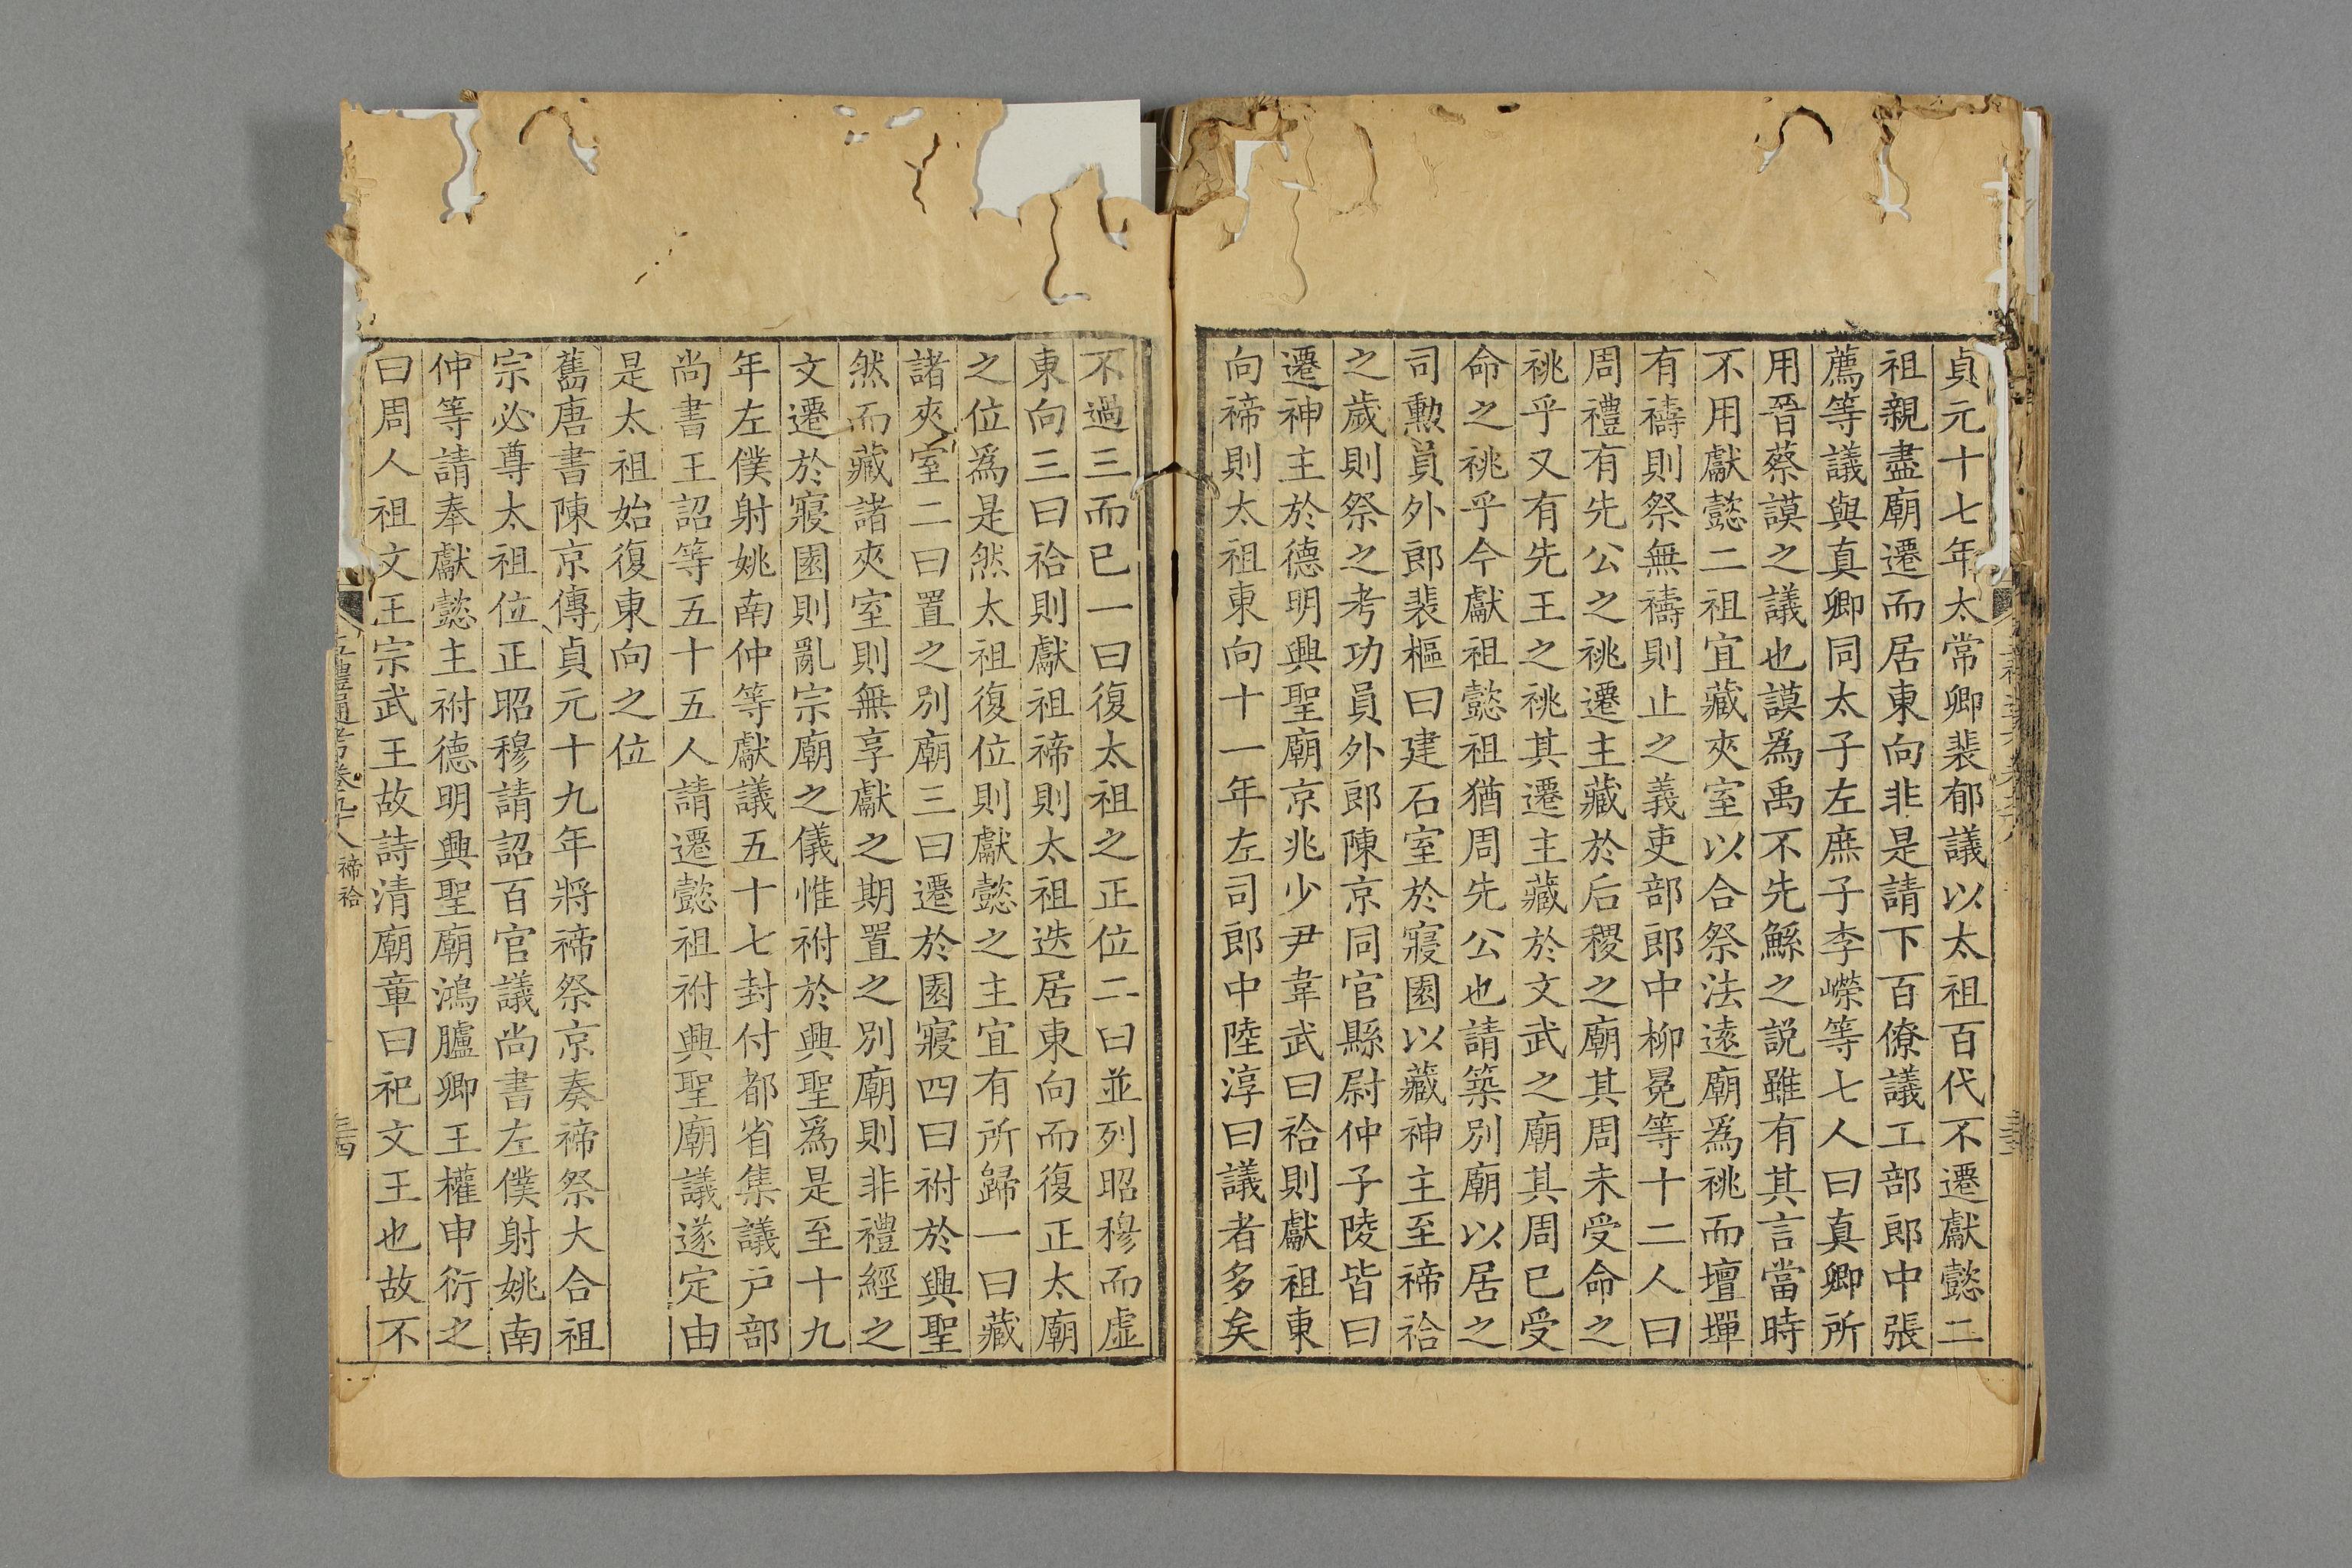 貞元十七年太常卿裴郁議以太祖百代不遷獻懿二
祖親盡廟遷而居東向非是請下百僚議工部郎中張
薦等議與真卿同太子左庶子李嶸等七人曰真卿所
用晉蔡謨之議也謨爲禹不先鯀之説雖有其言當時
不用獻懿二祖宜藏夾室以合祭法遠廟爲祧而壇墠
有禱則祭無禱則止之義吏部郎中柳冕等十二人曰
周禮有先公之祧遷主藏於后稷之廟其周未受命之
祧乎又有先王之祧其遷主藏於文武之廟其周已受
命之祧乎今獻祖懿祖猶周先公也請築別廟以居之
司勲員外郎裴樞曰建石室於寢園以藏神主至禘祫
之歲則祭之考功員外郎陳京同官縣尉仲子陵皆曰
遷神主於德明興聖廟京兆少尹韋武曰祫則獻祖東
向禘則太祖東向十一年左司郎中陸淳曰議者多矣
不過三而已一曰復太祖之正位二曰並列昭穆而虚
東向三曰祫則獻祖禘則太祖迭居東向而復正太廟
之位爲是然太祖復位則獻懿之主宜有所歸一曰藏
諸夾室二曰置之別廟三曰遷於園寢四曰祔於興聖
然而藏諸夾室則無享獻之期置之別廟則非禮經之
文遷於寢園則亂宗廟之儀惟祔於興聖爲是至十九
年左僕射姚南仲等獻議五十七封付都省集議户部
尚書王詔等五十五人請遷懿祖祔興聖廟議遂定由
是太祖始復東向之位
舊唐書陳京傳貞元十九年將禘祭京奏禘祭大合祖
宗必尊太祖位正昭穆請詔百官議尚書左僕射姚南
仲等請奉獻懿主祔德明興聖廟鴻臚卿王權申衍之
曰周人祖文王宗武王故詩清廟章曰祀文王也故不
五禮通考卷九十八 禘祫
三四